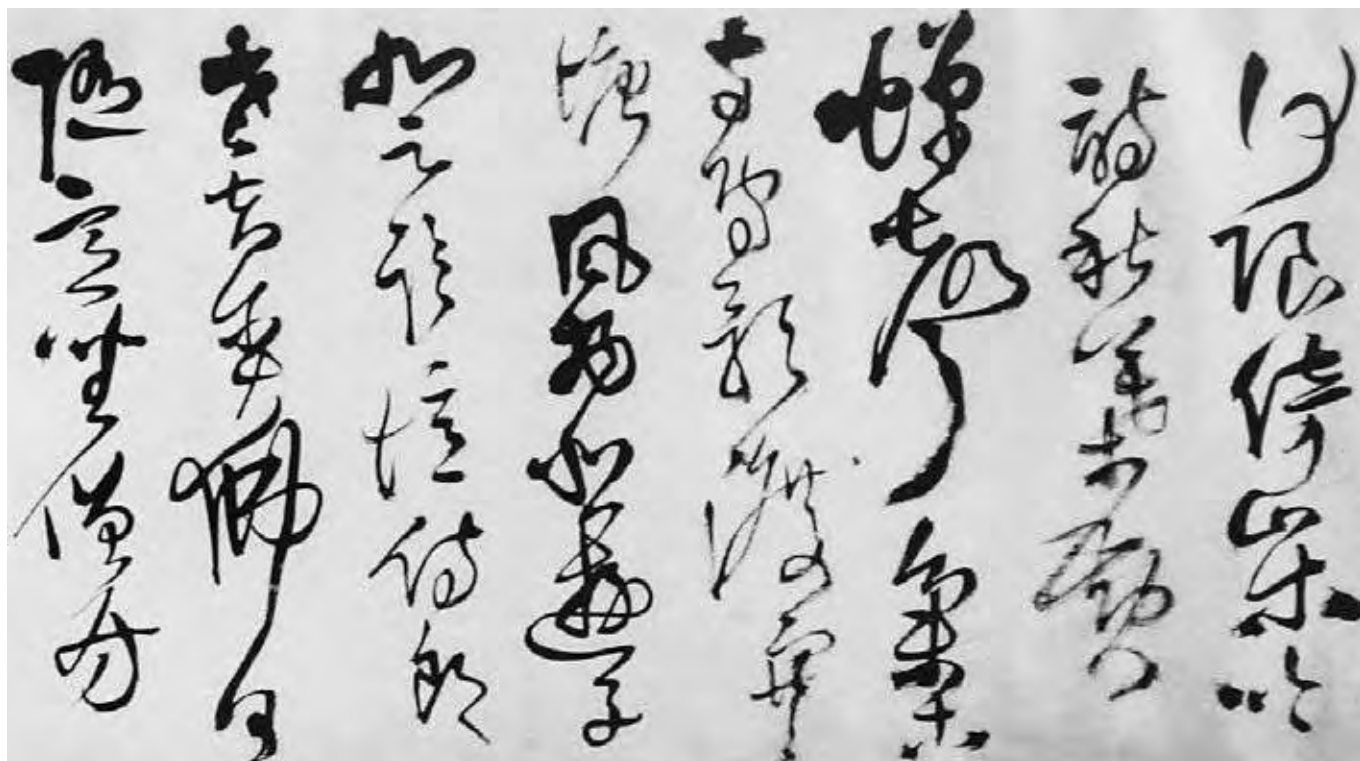 何限倚山木吟
詩秋葉黃
蟬聲集
古寺鳥影渡寒
塘風物悲遊子
登臨憶侍郎
老夫貪佛日
隨意坐僧房